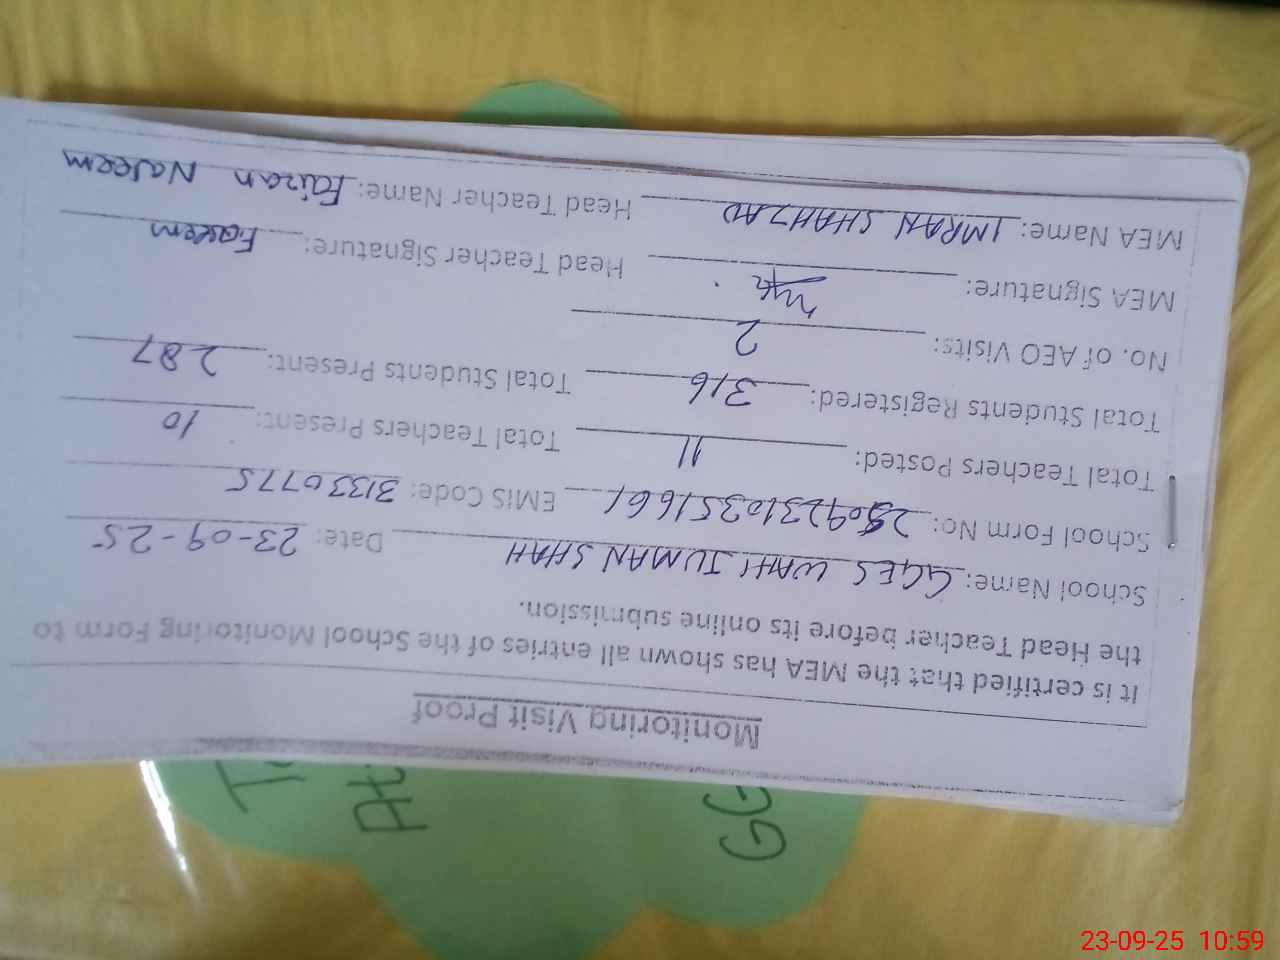 Monitoring Visit Proof
It is certified that the MEA has shown all entries of the School Monitoring Form to
the Head Teacher before its online submission.
School Name: GGES WAHI JUMAN SHAH Date: 23-09-25
School Form No: 25092310351661 EMIS Code: 31330775
Total Teachers Posted: 11 Total Teachers Present: 10
Total Students Registered: 316 Total Students Present: 287
No. of AEO Visits: 2
MEA Signature: Head Teacher Signature:
MEA Name: IMRAN SHAHZAD Head Teacher Name: Faizan Naeem
GG
23-09-25 10:59